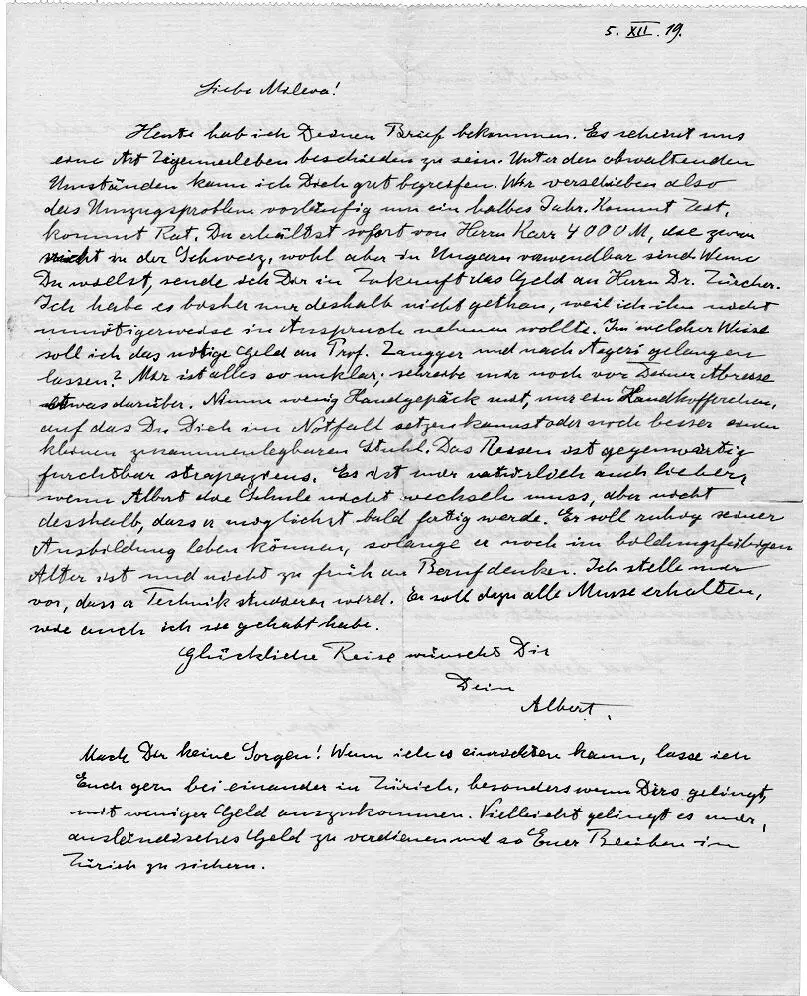 5. XII. 19.
Liebe Mileva!
Heute hab ich Deinen Brief bekommen. Es scheint uns
eine Art Zigeunerleben beschieden zu sein. Unter den obwaltenden
Umständen kann ich Dich gut begreifen. Wir verschieben also
das Umzugsproblem vorläufig um ein halbes Jahr. Kommt Zeit,
kommt Rat. Du erhältst sofort von Herrn Karr 4000 M, die zwar
nicht in der Schweiz, wohl aber in Ungarn verwendbar sind. Wenn
Du willst, sende ich Dir in Zukunft das Geld an Herrn Dr. Zürcher.
Ich habe es bisher nur deshalb nicht gethan, weil ich ihn nicht
unnötigerweise in Anspruch nehmen wollte. In welcher Weise
soll ich das nötige Geld an Prof. Zangger und nach Aegeri gelangen
lassen? Mir ist alles so unklar; schreibe mir noch vor Deiner Abreise
etwas darüber. Nimm wenig Handgepäck mit, nur ein Handkofferchen,
auf das Du Dich im Notfall setzen kannst oder noch besser einen
kleinen zusammenlegbaren Stuhl. Das Reisen ist gegenwärtig
furchtbar strapaziens. Es ist mir natürlich auch lieber,
wenn Albert die Schule nicht wechseln muss, aber nicht
desshalb, dass er möglichst bald fertig werde. Er soll ruhig seiner
Ausbildung leben können, solange er noch im bildungsfähigen
Alter ist und nicht zu früh an Beruf denken. Ich stelle mir
vor, dass er Technik studieren wird. Er soll dazu alle Musse erhalten,
wie auch ich sie gehabt habe.
Glückliche Reise wünscht Dir
Dein
Albert.
Mach Dir keine Sorgen! Wenn ich es einrichten kann, lasse ich
Euch gern bei einander in Zürich, besonders wenn Dirs gelingt,
mit weniger Geld auszukommen. Vielleicht gelingt es mir,
ausländisches Geld zu verdienen und so Euer Bleiben in
Zürich zu sichern.